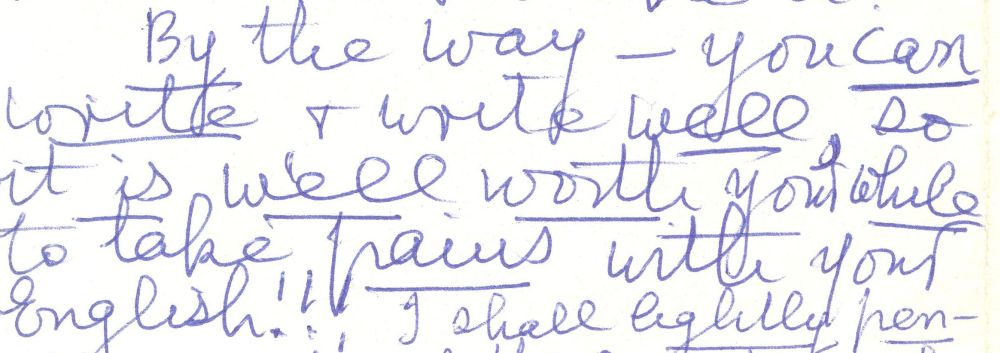 By the way – you can
write + write well, so
it is well worth your while
to take pains with your
English!!! I shall lightly pen-